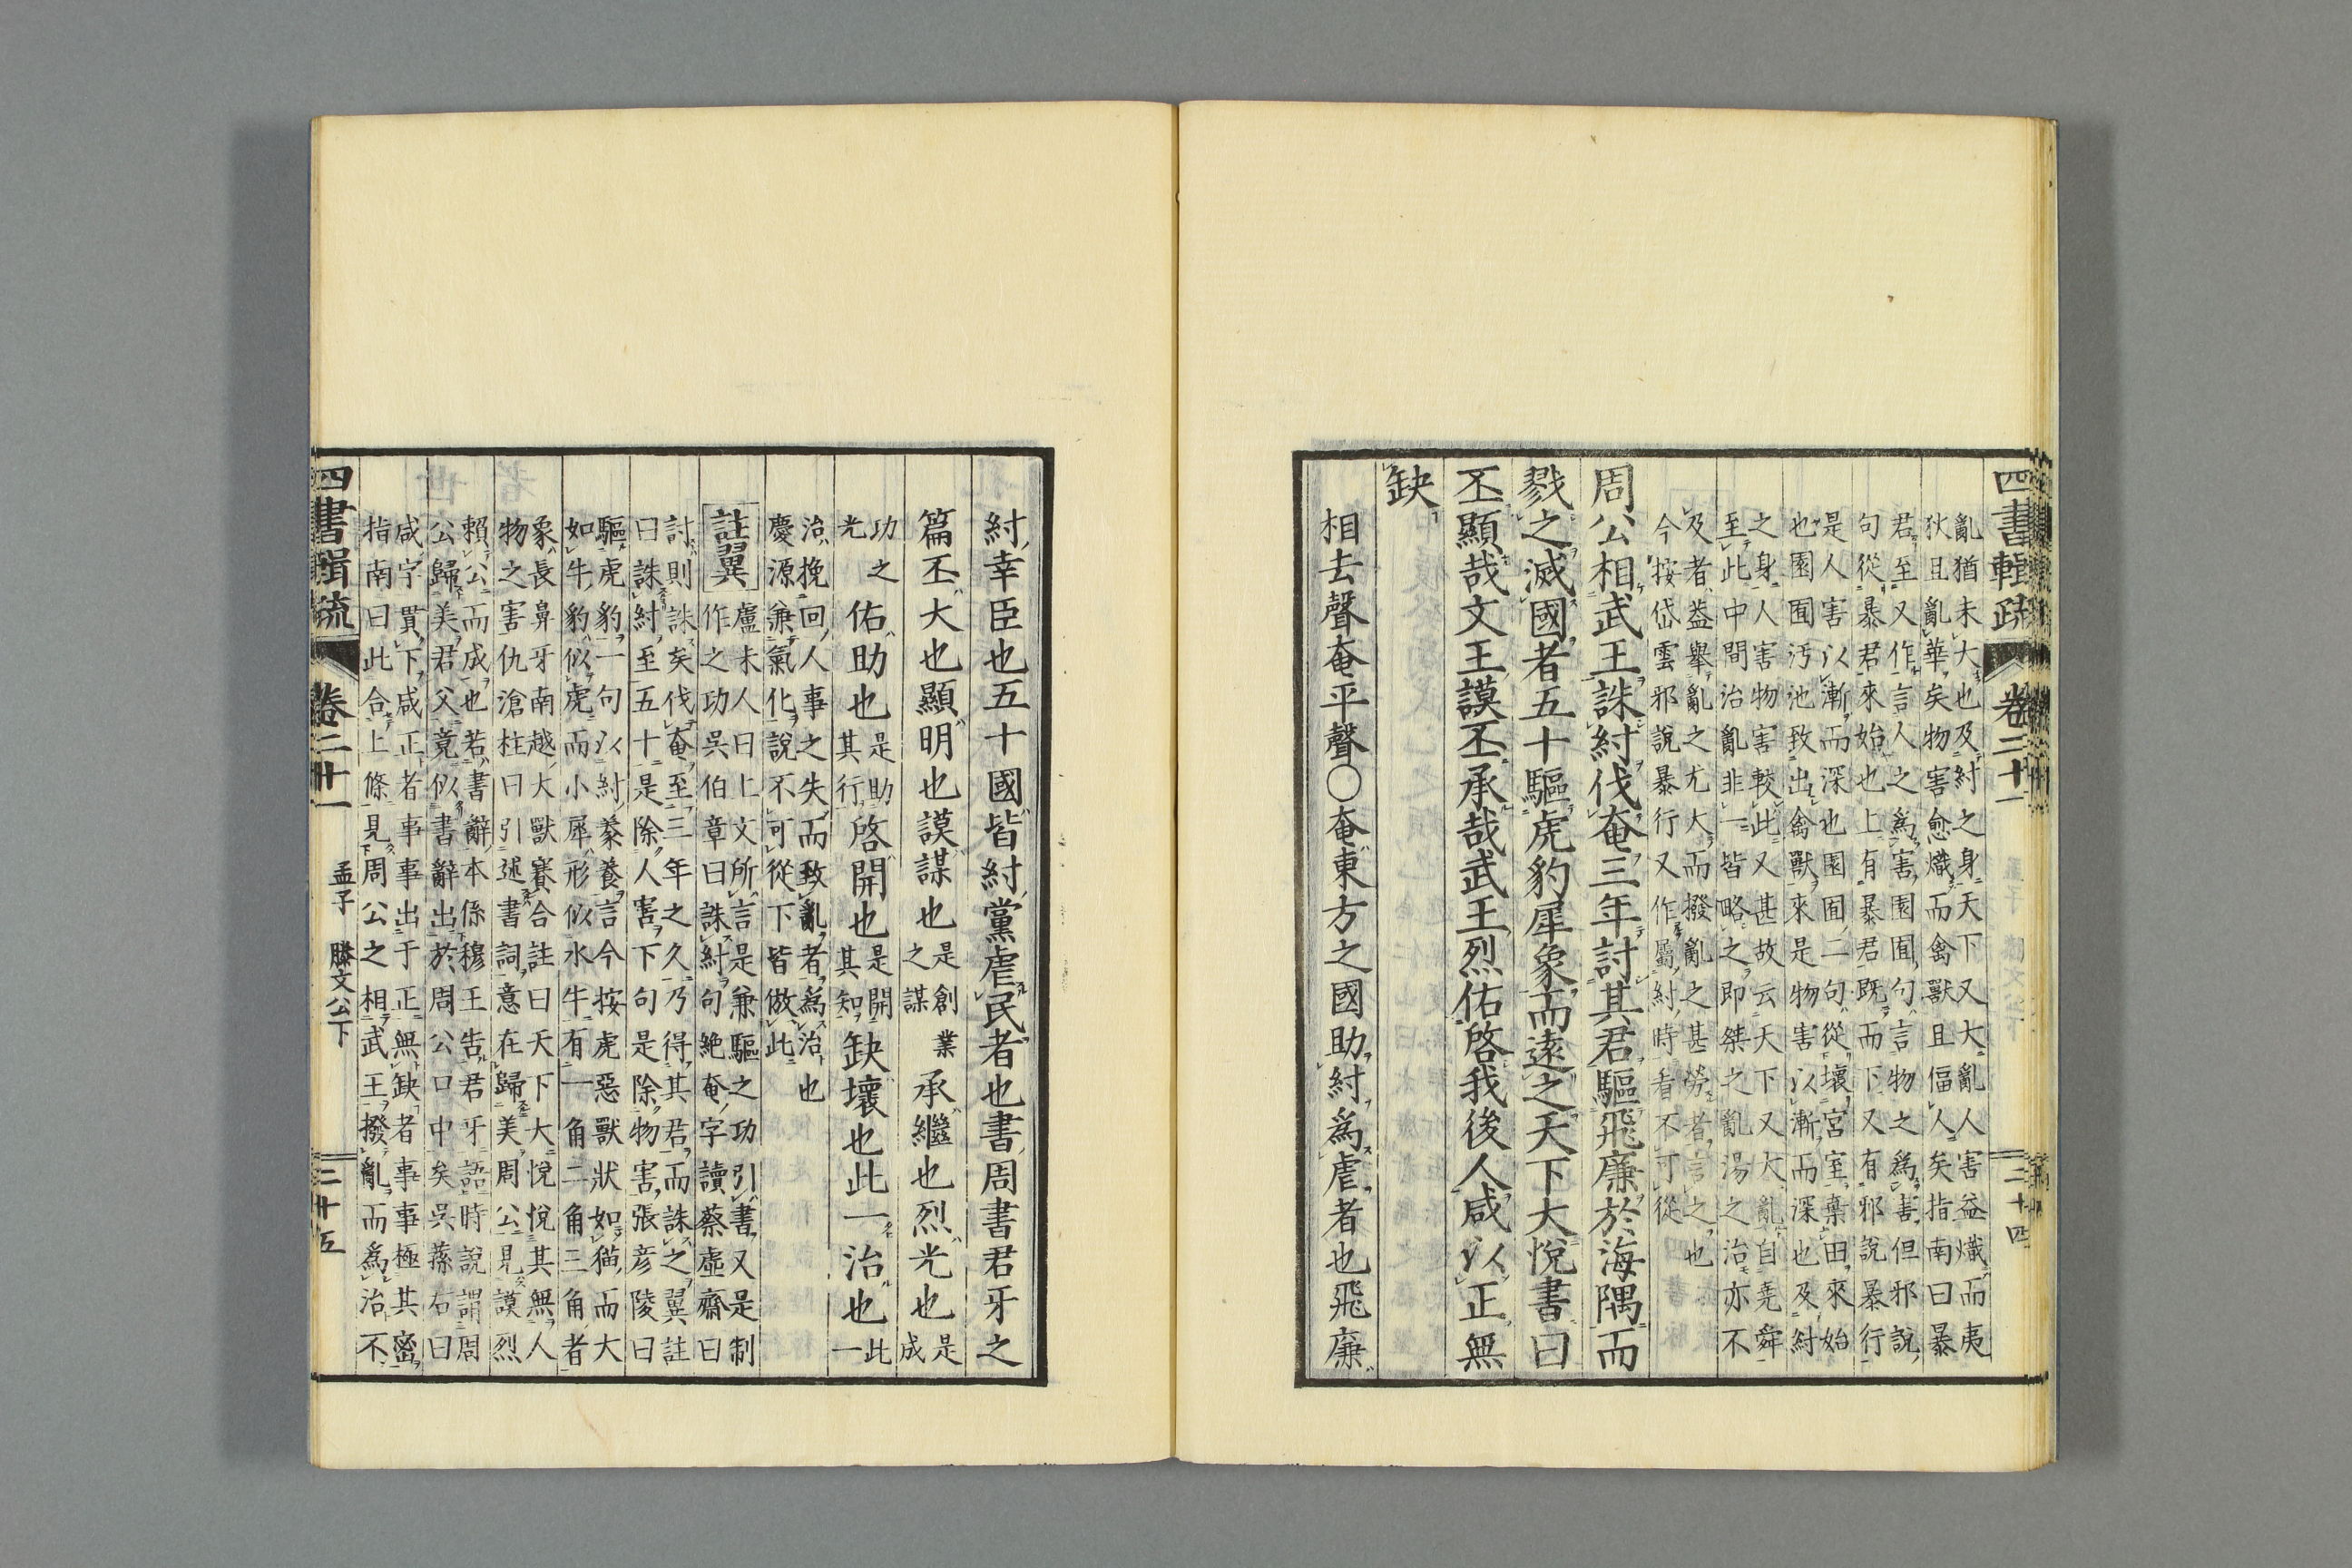 四書輯疏 卷二十一 二十四
亂猶未大也及紂之身天下又大亂人害益熾而夷
狄且亂華矣物害愈熾而禽獸且偪人矣指南曰暴
君至又作言人之為害園囿句言物之為害但邪說
句從暴君來始也上有暴君既而下又有邪說暴行
是人害以漸而深也園囿二句從壞宮室棄田來始
也園囿汚池致出禽獸來是物害以漸而深也及紂
之身人害物害較此又甚故云天下又大亂自堯舜
至此中間治亂非一皆略之即桀之亂湯之治亦不
及者葢舉亂之尤大而撥亂之甚勞者言之也
今按岱雲邪說暴行又作屬紂時看不可從
周公相武王誅紂伐奄三年討其君驅飛廉於海隅而
戮之滅國者五十驅虎豹犀象而遠之天下大悅書曰
丕顯哉文王謨丕承哉武王烈佑啓我後人咸以正無
缺
相去聲奄平聲○奄東方之國助紂為虐者也飛廉
紂幸臣也五十國皆紂黨虐民者也書周書君牙之
篇丕大也顯明也謨謀也是創業之謀承繼也烈光也是成
功之光佑助也是助其行啓開也是開其知缺壞也此一治也此一
治挽回人事之失而致亂者為治也
慶源兼氣化說不可從下皆倣此
註翼 盧未人曰上文所言是兼驅之功引書又是制
作之功吳伯章曰誅紂句絶奄字讀蔡虛齋曰
討則誅矣伐奄至三年之久乃得其君而誅之翼註
曰誅紂至五十是除人害下句是除物害張彦陵曰
驅虎豹一句以紂豢養言今按虎惡獸狀如猫而大
如牛豹似虎而小犀形似水牛有一角二角三角者
象長鼻牙南越大獸賽合註曰天下大悅悅其無人
物之害仇滄柱曰引述書詞意在歸美周公見謨烈
賴公而成也若書辭本係穆王告君牙語時說謂周
公歸美君父竟似書辭出於周公口中矣吳蓀右曰
咸字貫下咸正者事事出于正無缺者事事極其密
指南曰此合上條見周公之相武王撥亂而為治不
四書輯疏 卷二十一 孟子 滕文公下 二十五